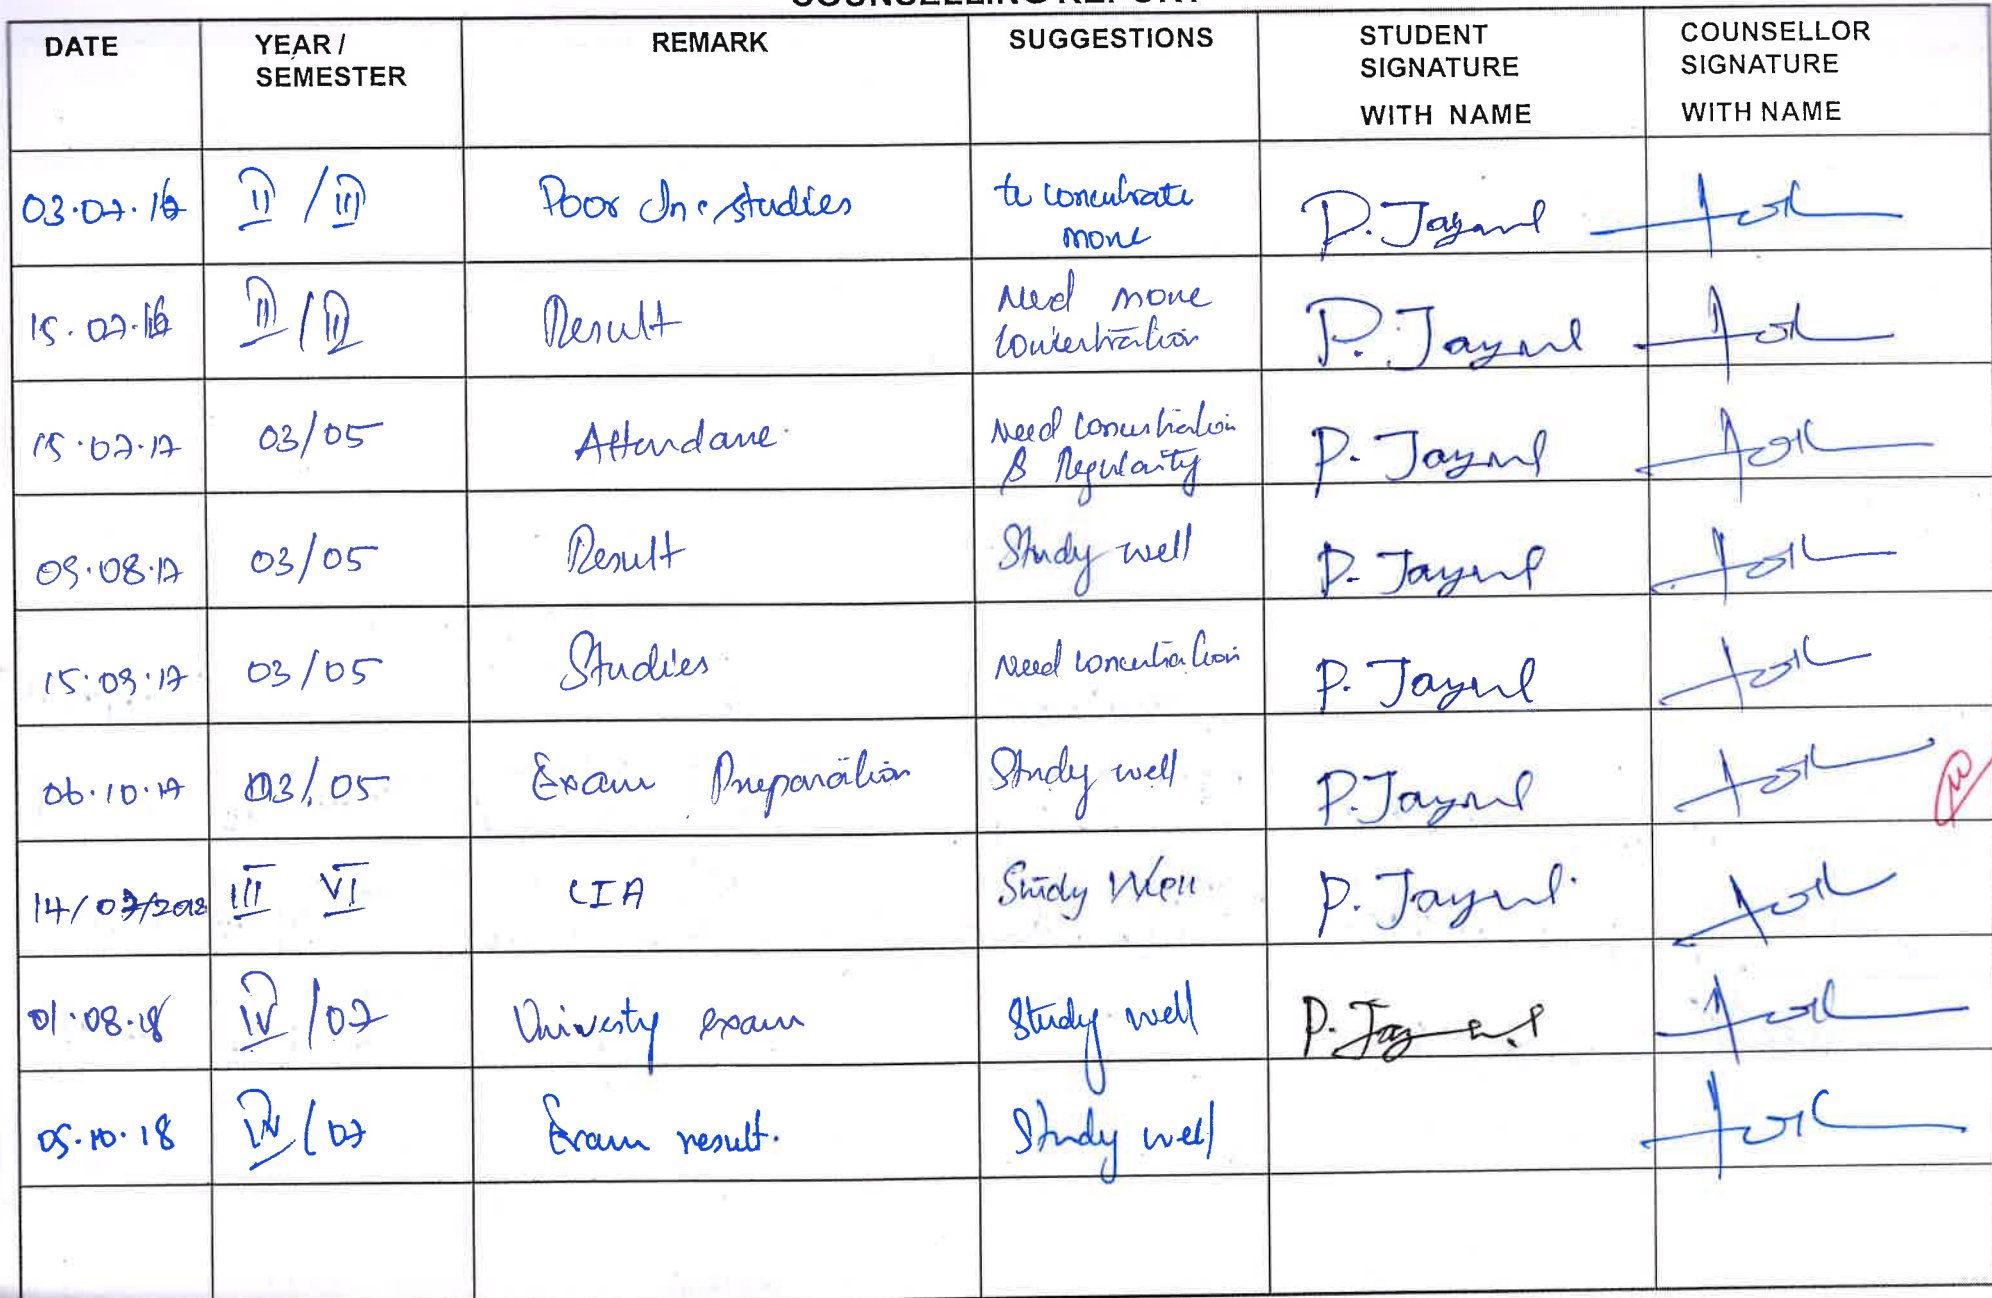 COUNSELLING REPORT
DATE YEAR / SEMESTER REMARK SUGGESTIONS STUDENT SIGNATURE WITH NAME COUNSELLOR SIGNATURE WITH NAME
03.07.16 II / III Poor In studies to concentrate more P. Jayaul
15.07.16 II / III Result Need more concentration P. Jayaul
15.07.17 03/05 Attendance Need concentration & Regularity P. Jayaul
09.08.17 03/05 Result Study well P. Jayaul
15.09.17 03/05 Studies Need concentration P. Jayaul
06.10.17 03/05 Exam Preparation Study well P. Jayaul
14/07/2018 III VI CIA Study Well P. Jayaul
01.08.18 IV / 07 University exam Study well P. Jayaul
05.10.18 IV / 07 Exam result. Study well